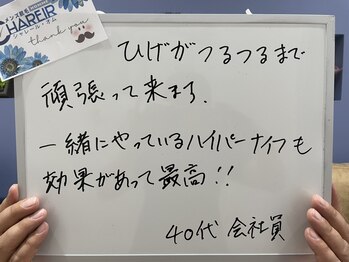 メンズ脱毛
HAREIR
シャレール・オム
thank you
ひげがつるつるまで
頑張って来ます.
一緒にやっているハイパーナイフも
効果があって最高!!
40代 会社員